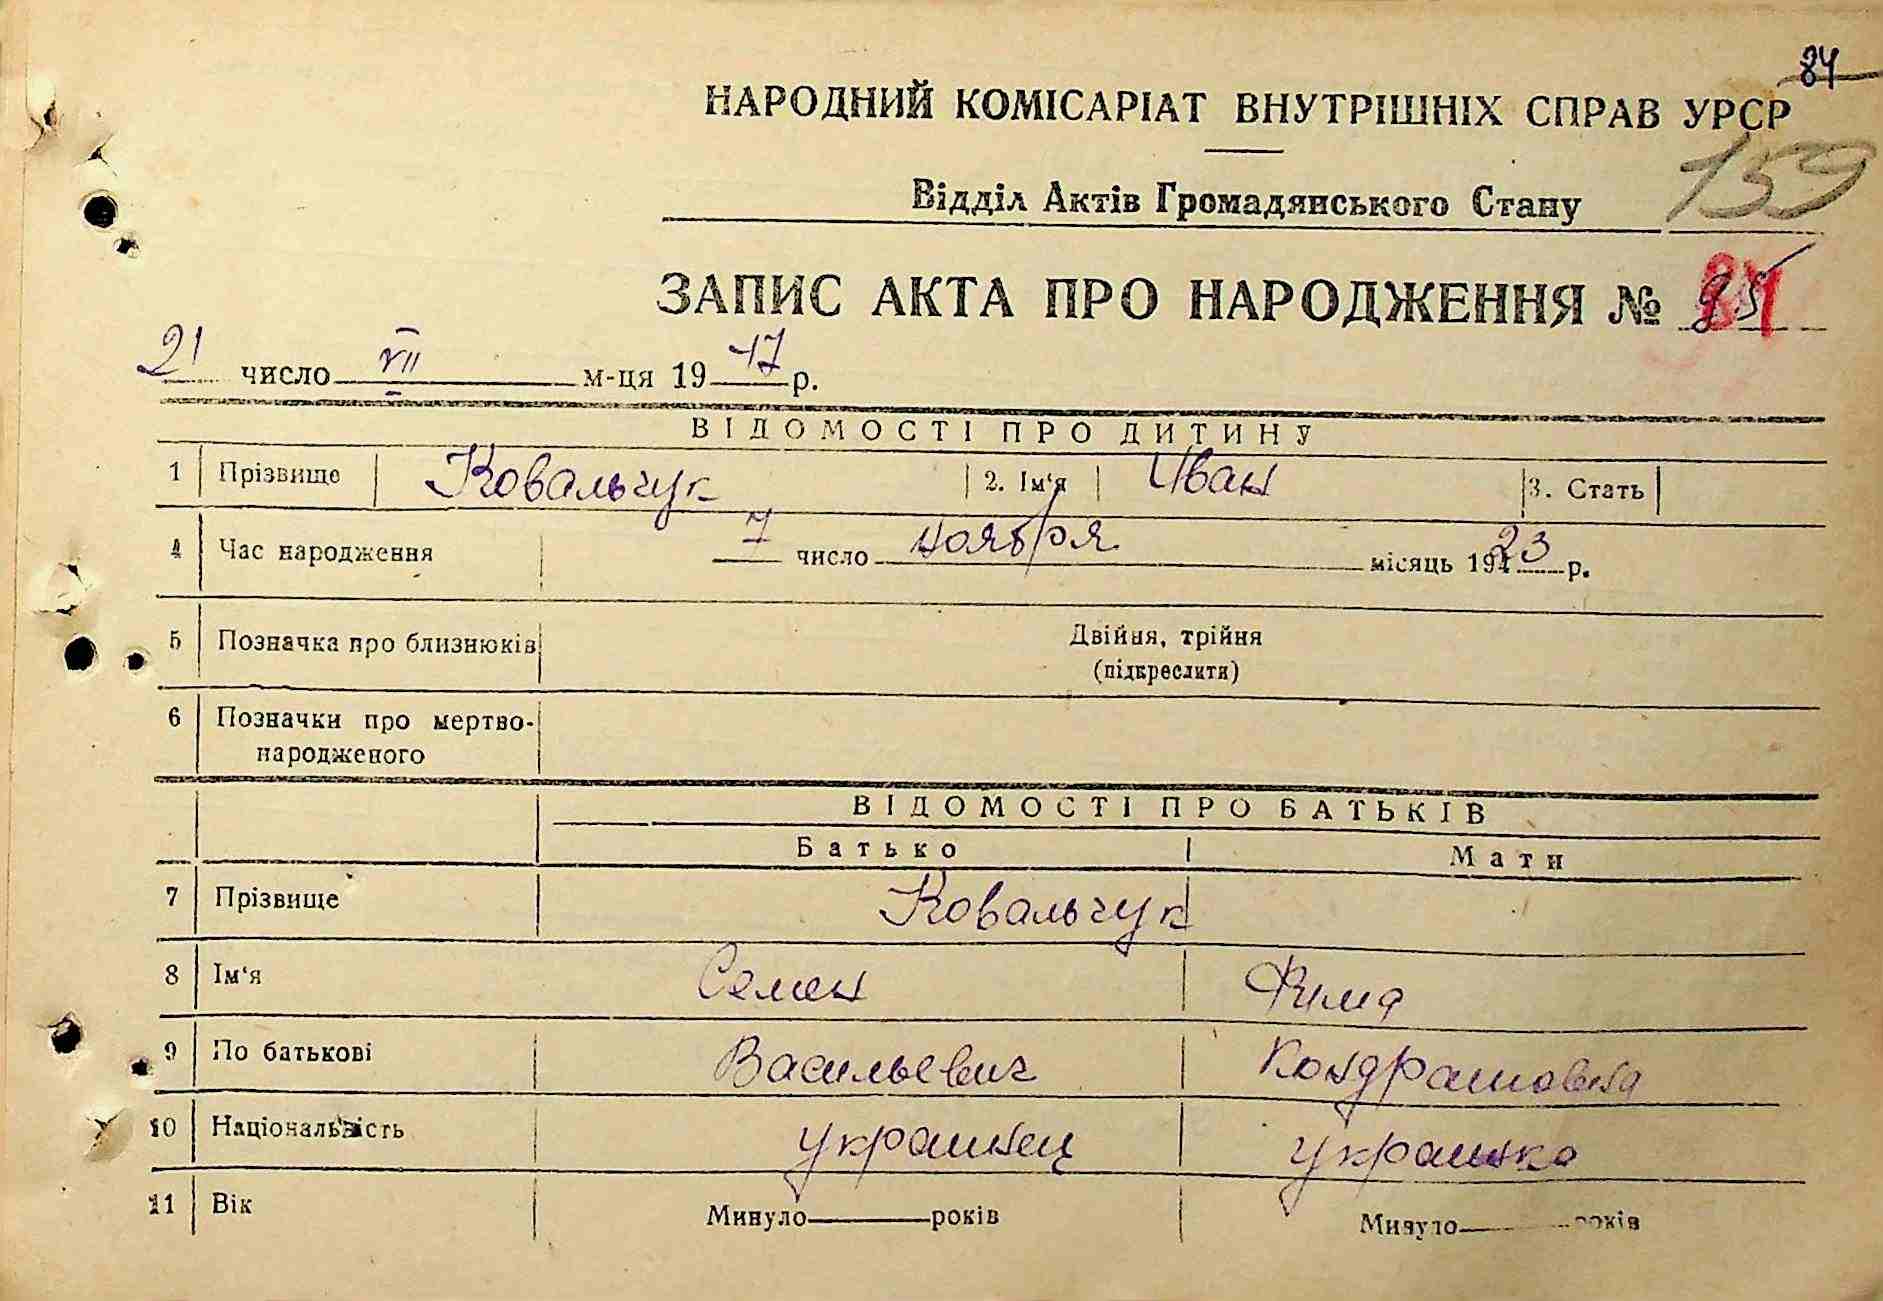 84
НАРОДНИЙ КОМІСАРІАТ ВНУТРІШНІХ СПРАВ УРСР
159
Відділ Актів Громадянського Стану
ЗАПИС АКТА ПРО НАРОДЖЕННЯ №
21 число VII м-ця 19 47 р.
ВІДОМОСТІ ПРО ДИТИНУ
1 Прізвище Ковальчук 2. Ім'я Иван 3. Стать
4 Час народження 7 число ноября місяць 19 23 р.
5 Позначка про близнюків Двійня, трійня
(підкреслити)
6 Позначки про мертво-
народженого
ВІДОМОСТІ ПРО БАТЬКІВ
Батько Мати
7 Прізвище Ковальчук
8 Ім'я Семен Фима
9 По батькові Васильевич Кондратовна
10 Національність украинец украинка
11 Вік Минуло років Минуло років